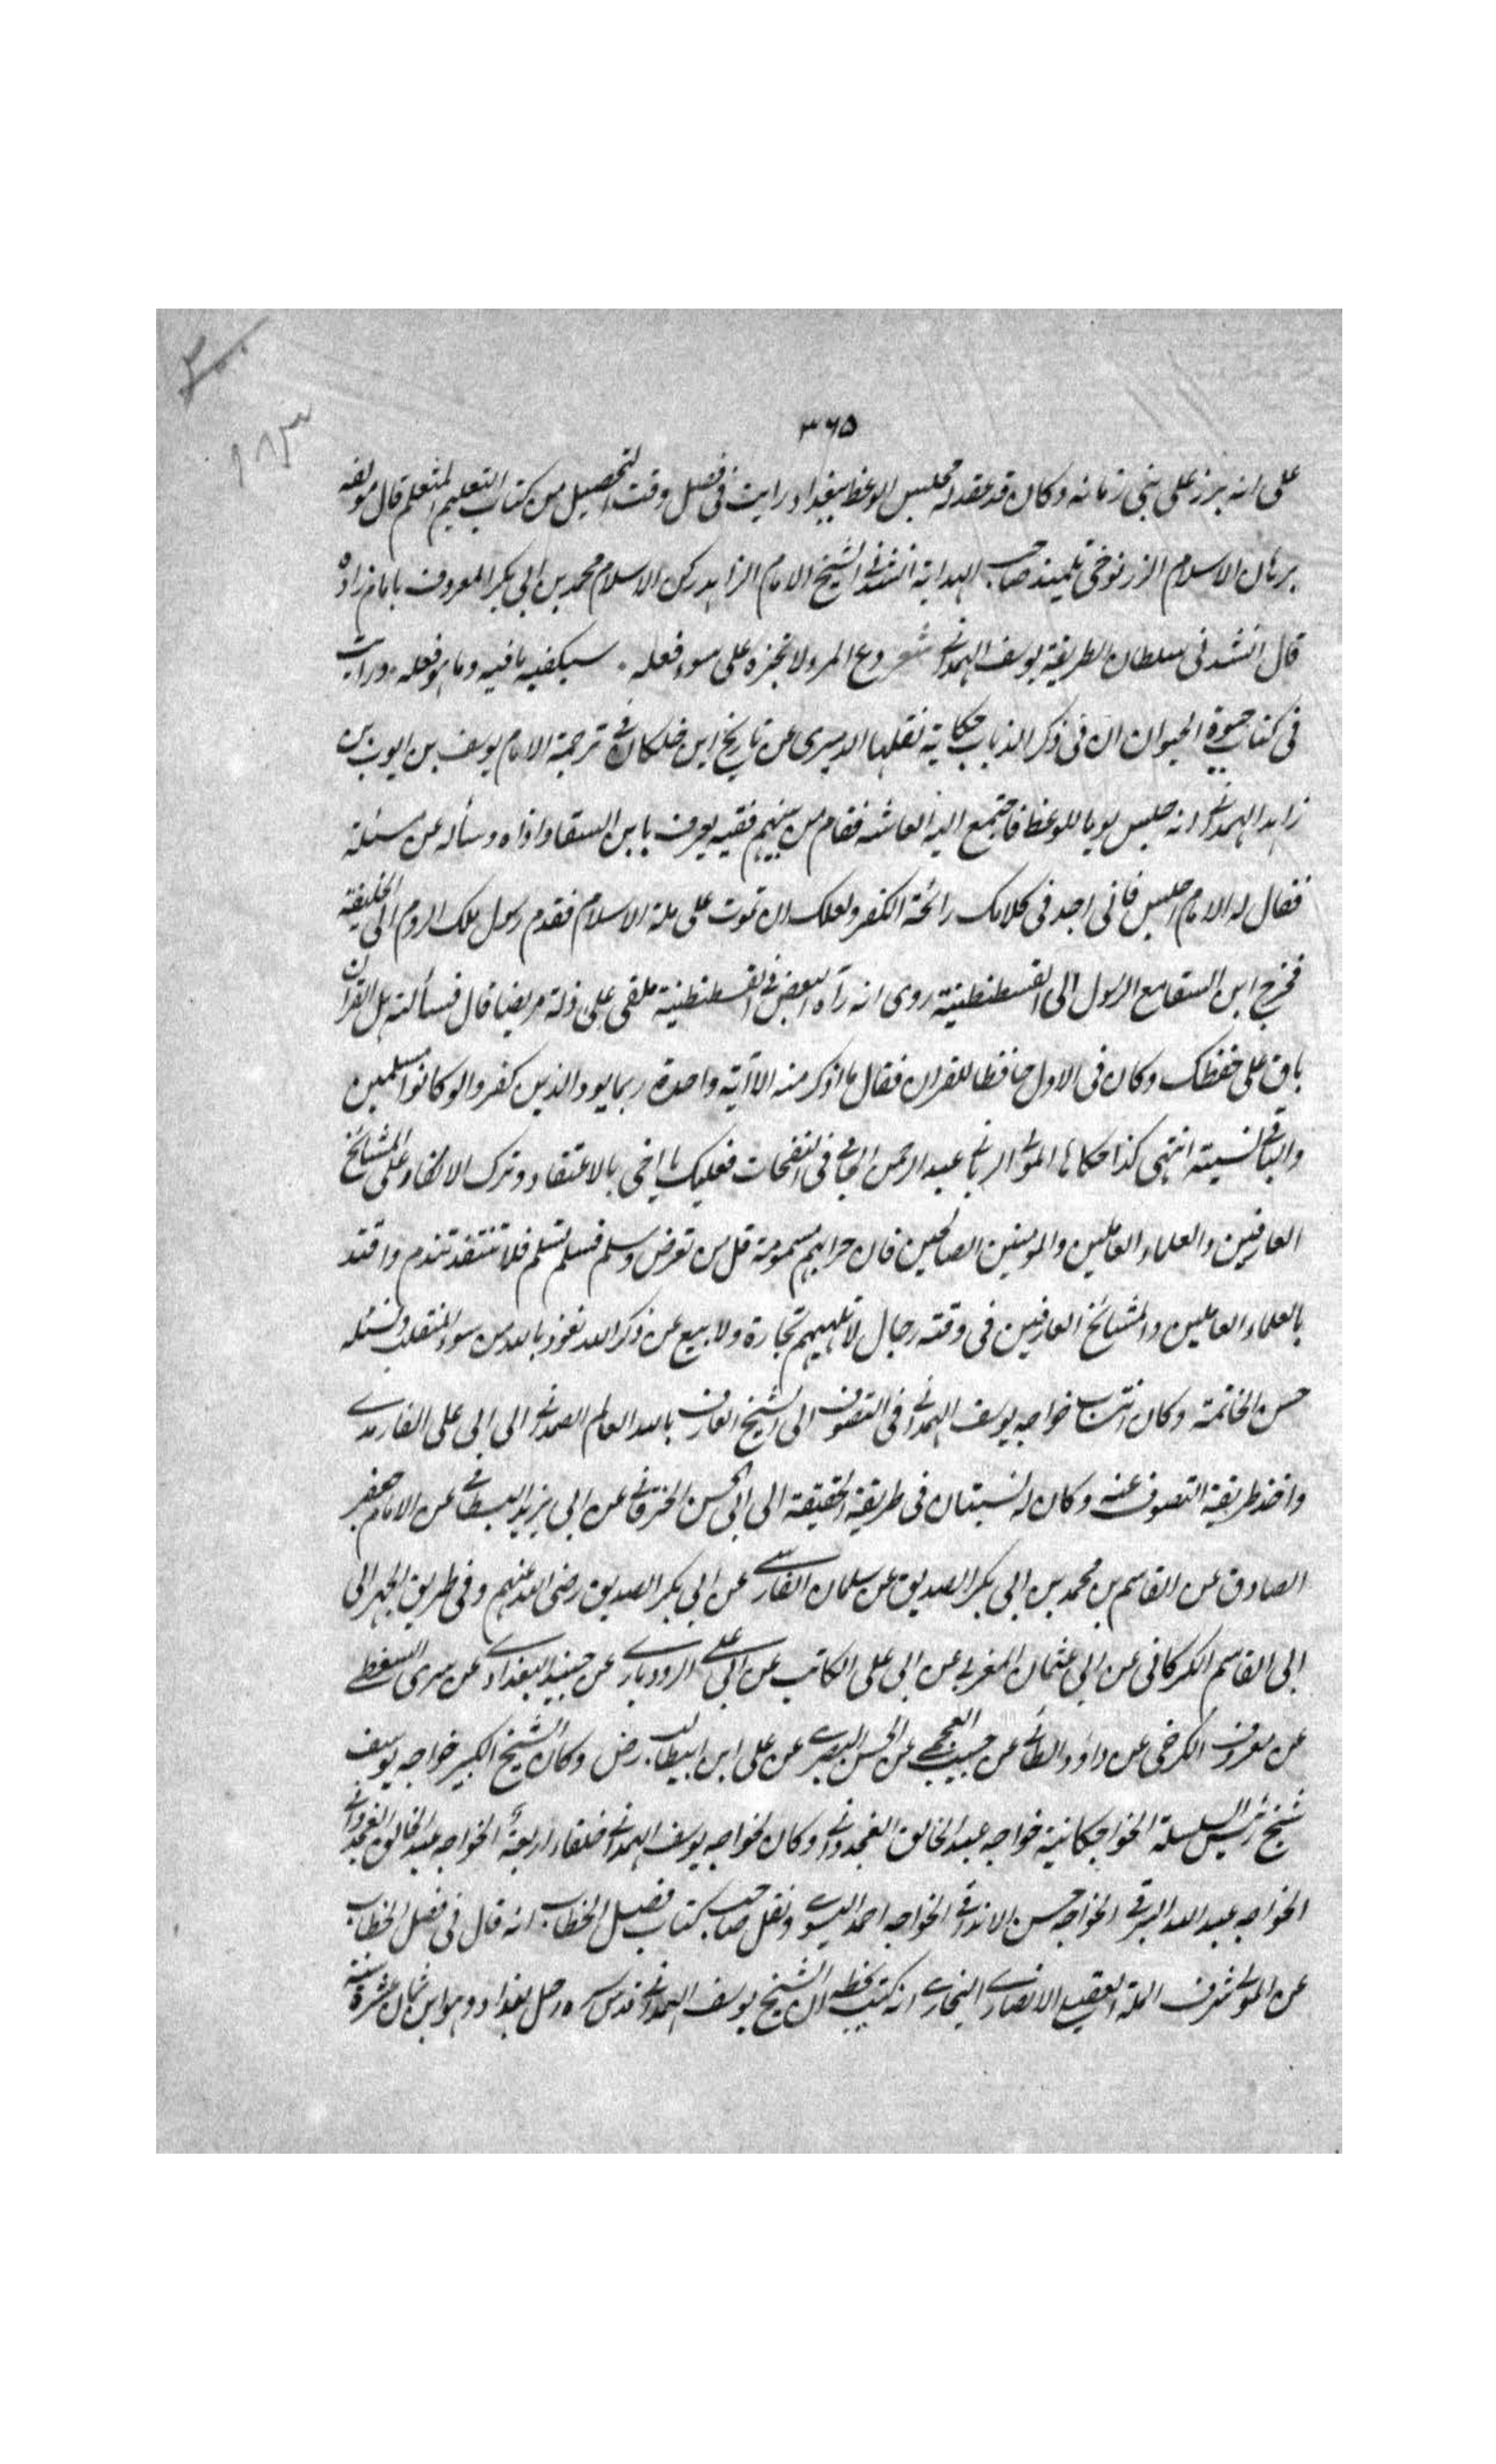 ٣٦٥
على انه برز على بنى زمانه وكان قد عقد له مجلس الوعظ ببغداد ورايت فى فصل وقت التحصيل من كتاب التعليم المتعلم قال مولفه
برهان الاسلام الزرنوخى تلميذ صاحب الهداية انشدنى الشيخ الامام الزاهد ركن الاسلام محمد بن ابى بكر المعروف بامام زاده
قال انشدنى سلطان الطريقة يوسف الهمدانى شعر دع المر ولا تجزه على سوء فعله . سيكفيه ما فيه وما هو فعله . ورايت
فى كتاب حيوة الحيوان ان فى ذكر الذباب حكاية نقلها الدميرى عن تاريخ ابن خلكان فى ترجمة الامام يوسف بن ايوب بن
زاهد الهمدانى انه جلس يوما للوعظ فاجتمع اليه العامة فقام من بينهم فقيه يعرف بابن السقا واذاه وسأله عن مسئلة
فقال له الامام اجلس فانى اجد فى كلامك رائحة الكفر ولعلك ان تموت على ملة الاسلام فقدم رسول ملك الروم الى الخليفة
فخرج ابن السقا مع الرسول الى القسطنطينية روى انه رآه البعض فى القسطنطينية ملقى على ذلة مريضا قال فسألته هل القران
باق على حفظك وكان فى الاول حافظا للقران فقال ما اذكر منه الا آية واحدة ربما يود الذين كفروا لو كانوا مسلمين
والباقى نسيته انتهى كذا حكاها المولى الربانى عبد الرحمن الجامى فى النفحات فعليك يا اخى بالاعتقاد وترك الانكار على المشائخ
العارفين والعلماء العاملين والمومنين الصالحين فان حرابهم مسمومة قل من تعرض وسلم فسلم تسلم فلا تنتقد تندم واقتد
بالعلماء العاملين والمشائخ العارفين فى وقته رجال لا تلهيهم تجارة ولا بيع عن ذكر الله نعوذ بالله من سوء المنقلب ونسئله
حسن الخاتمة وكان انتساب خواجه يوسف الهمدانى فى التصوف الى الشيخ العارف بالله العالم الصمدانى الى ابى على الفارمدى
واخذ طريقة التصوف عنه وكان له نسبتان فى طريقة الحقيقة الى ابى الحسن الخرقانى عن ابى يزيد البسطامى عن الامام جعفر
الصادق عن القاسم بن محمد بن ابى بكر الصديق عن سلمان الفارسى عن ابى بكر الصديق رضى الله عنهم وفى طريق الجهر الى
ابى القاسم الكركانى عن ابى عثمان المغربى عن ابى على الكاتب عن ابى على الرودبارى عن جنيد البغدادى عن سرى السقطى
عن معروف الكرخى عن داؤد الطائى عن حبيب العجمى عن الحسن البصرى عن على ابن ابيطالب رض وكان الشيخ الكبير خواجه يوسف
شيخ رئيس السلسلة الخواجكانية خواجه عبد الخالق الغجدوانى وكان لخواجه يوسف الهمدانى خلفاء اربعة الخواجه عبد الخالق الغجدوانى
الخواجه عبد الله البرقى الخواجه حسن الاندقى الخواجه احمد اليسوى ونقل صاحب كتاب فصل الخطاب انه قال فى فصل الخطاب
عن المولى شرف الملة العقيلى الانصارى البخارى انه كتب بخطه ان الشيخ يوسف الهمدانى قدس سره رحل بغداد وهو ابن ثمان عشرة سنة